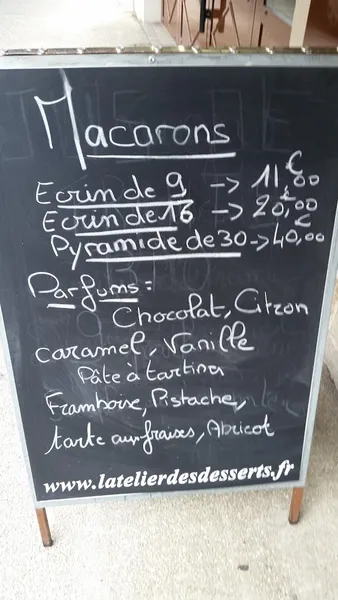 Macarons
Ecrin de 9 -> 11€00
Ecrin de 16 -> 20€,00
Pyramide de 30 -> 40€,00
Parfums =
Chocolat, Citron
caramel, Vanille
Pâte à tartina
Framboise, Pistache,
tarte aux fraises, Abricot
www.latelierdesdesserts.fr